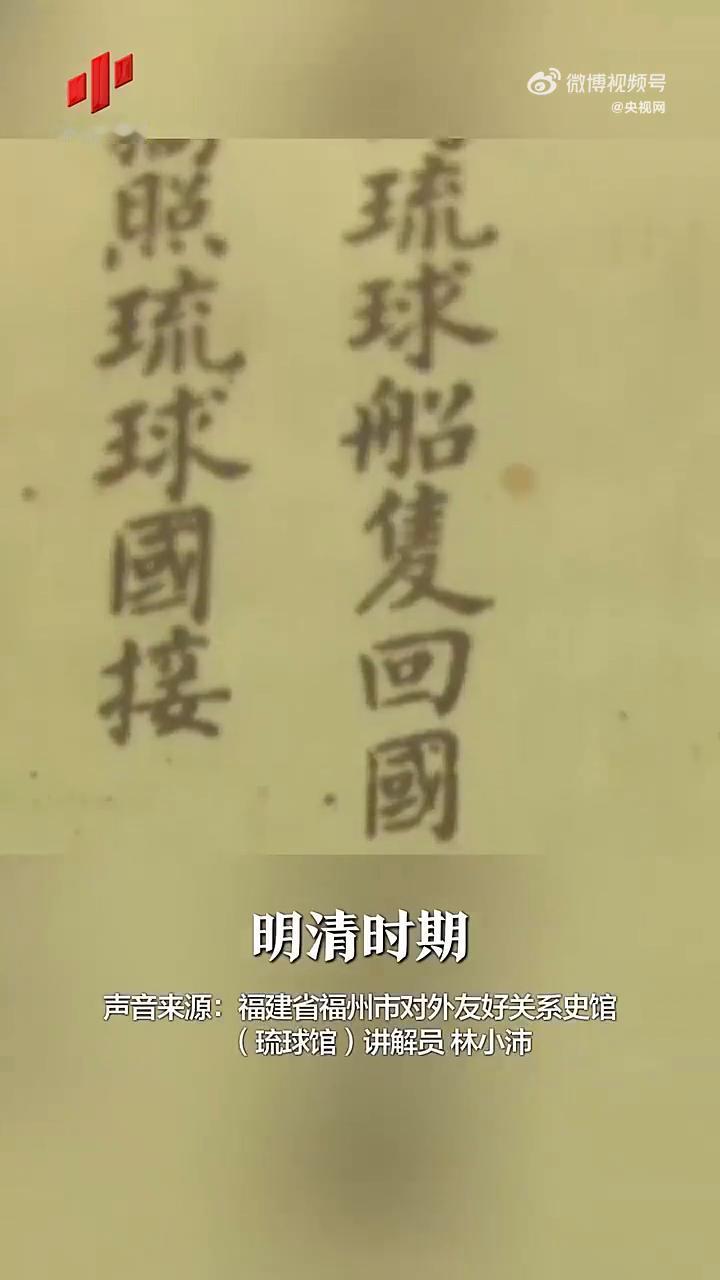 微博视频号
@央视网
琉球船隻回國
照琉球國接
明清时期
声音来源：福建省福州市对外友好关系史馆
（琉球馆）讲解员 林小沛